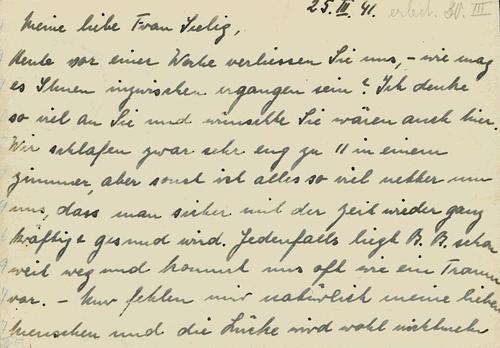 25. III. 41. erhct. 30. III
Meine liebe Frau Seelig,
Heute vor einer Woche verliessen Sie uns, – wie mag
es Ihnen inzwischen ergangen sein? Ich denke
so viel an Sie und wünschte Sie wären auch hier.
Wir schlafen zwar sehr eng zu 11 in einem
Zimmer, aber sonst ist alles so viel netter um
uns, dass man sicher mit der Zeit wieder ganz
kräftig & gesund wird. Jedenfalls liegt B. B. schon
weit weg und kommt uns oft wie ein Traum
vor. – Nur fehlen mir natürlich meine lieben
Menschen und die Lücke wird wohl nicht mehr